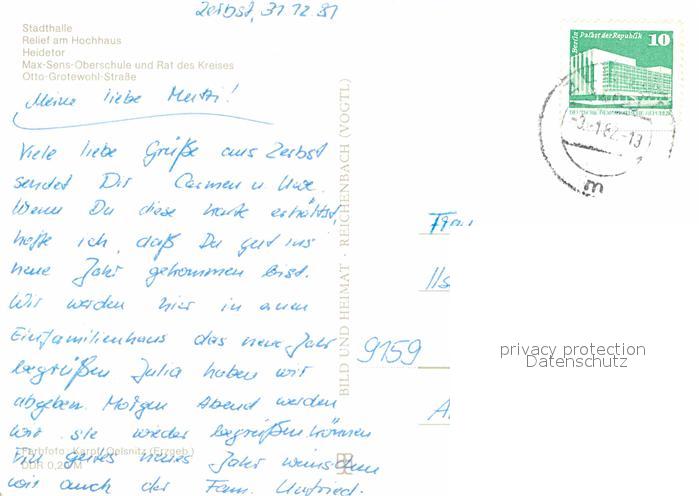 Zerbst, 31 12 81
Stadthalle
Relief am Hochhaus
Heidetor
Max-Sens-Oberschule und Rat des Kreises
Otto-Grotewohl-Straße
Meine liebe Mutti!
Viele liebe Grüße aus Zerbst
sendet Dir Carmen u Uwe.
Wenn Du diese Karte erhältst,
hoffe ich, daß Du gut ins
neue Jahr gekommen bist.
Wir werden hier in einem
Einfamilienhaus das neue Jahr
begrüßen Julia haben wir
abgeben. Morgen Abend werden
wir sie wieder begrüßen können
Ein gutes neues Jahr wünschen
wir auch der Fam. Unfried.
Farbfoto: Karpf, Oelsnitz (Erzgeb.)
DDR 0,20 M
BILD UND HEIMAT · REICHENBACH (VOGTL)
Berlin Palast der Republik
10
DEUTSCHE DEMOKRATISCHE REPUBLIK
-3.-1.82.-13
m
Frau
Ils
9159
A
privacy protection
Datenschutz